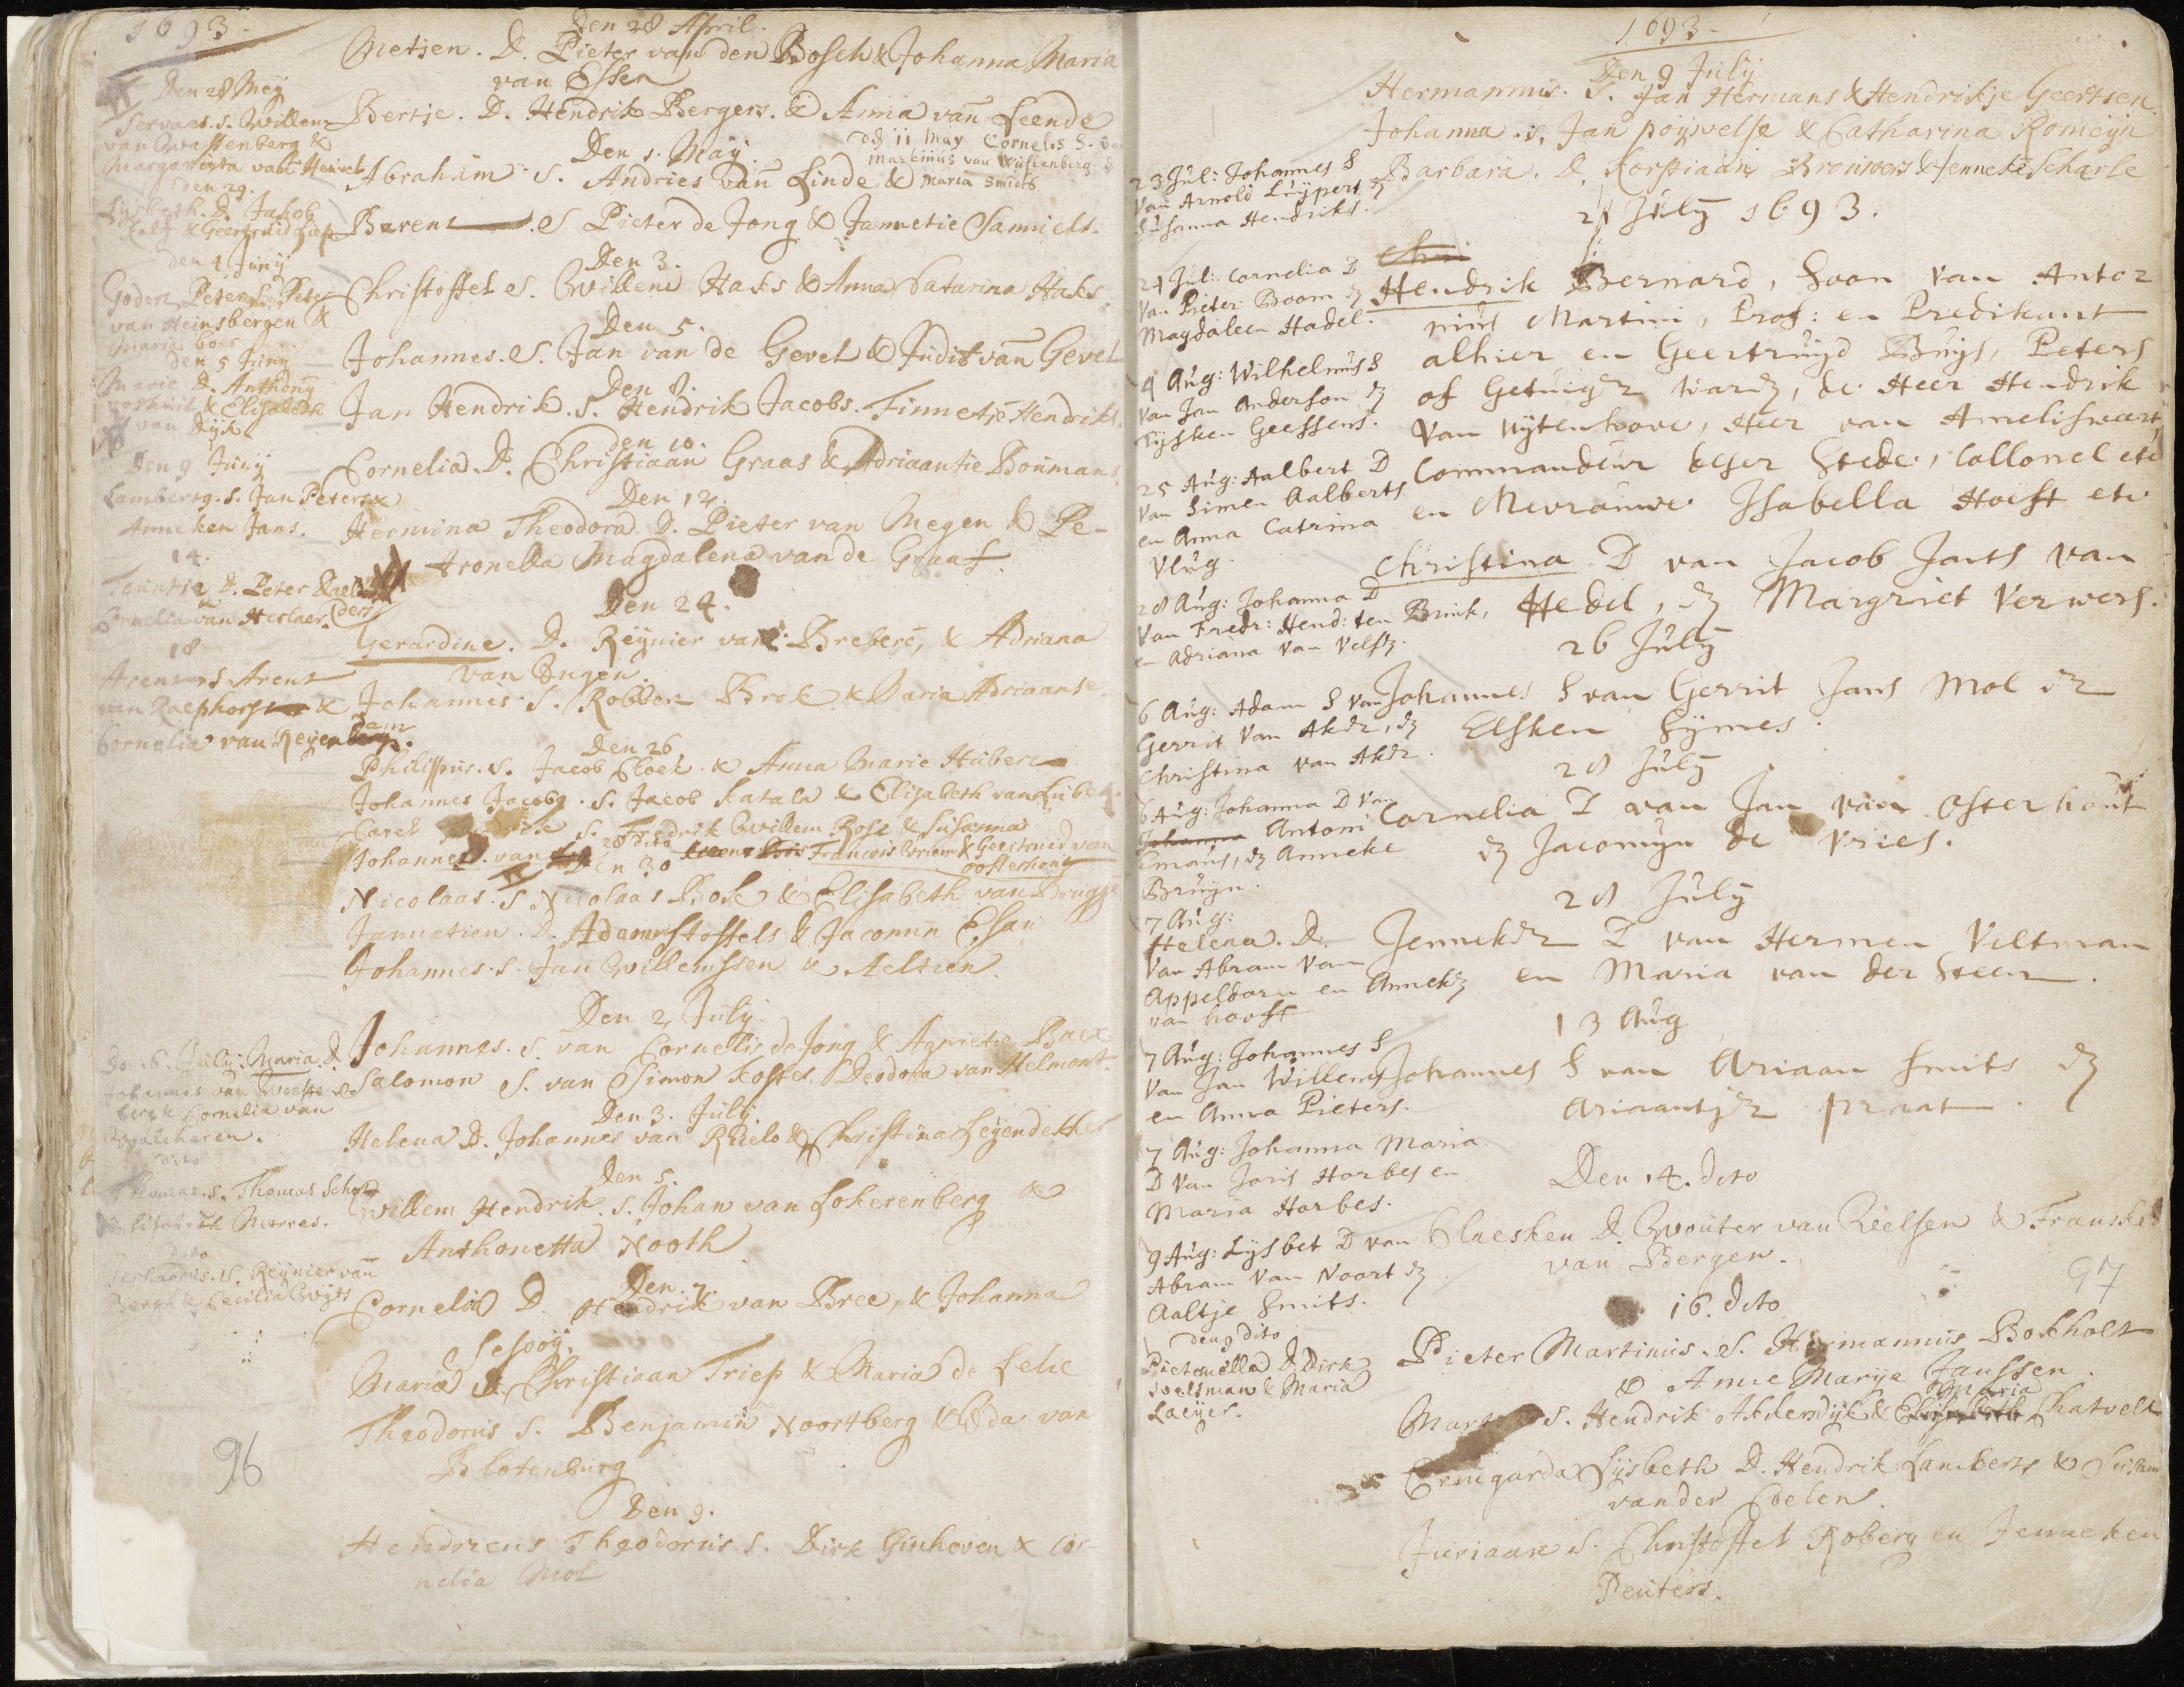 1693.
Den 28 April.
Metjen. D. Pieter van den Bosch & Johanna Maria
van Essen
Bertje. D. Hendrik Bergers. & Anna van Leende
dz 11 May Cornelis S. van
Martinus van Wüstenberg &
Maria Smids
Den 1. Maÿ.
Abraham S. Andries van Linde &
Barent S Pieter de Jong & Jannetie Samuels.
Den 3.
Christoffel S. Willem Haks & Anna Catarina Haks.
Den 5.
Johannes. S. Jan van de Gevel & Judit van Gevel
Den 8.
Jan Hendrik. S. Hendrik Jacobs. Finnetje Hendriks.
den 10.
Cornelia. D. Christiaan Graas & Adriaantie Boumans
Den 12.
Hermina Theodora D. Pieter van Megen & Pe-
tronella Magdalena van de Graaf.
Den 24.
Gerardine. D. Reÿnier van Breberé, & Adriana
van Engen.
Johannis. S. Robbert Brok & Maria Adriaanse.
Den 26
Philippus. S. Jacob Cloek & Anna Marie Hubert
Johannes Jacobg. S. Jacob Katala & Elisabeth van Lubek.
Carel S. Fredrik Willem Rose & Susanna
28 dito
Johannes. van Francois Vriem & Geertruid van
oosterhout
Den 30
Nicolaas. S Nicolaas Bosk & Elisabeth van Brugge
Jannetien. D. Adam Stoffels & Jacomin Esan
Johannes. S. Jan Willemssen & Aeltien.
Den 2, Julÿ.
Johannes. S. van Cornelis de Jong & Agnietie Baex
Salomon S. van Simon Koster. Deodora van Helmont.
Den 3. Julÿ.
Helena D. Johannes van Rhielo & Christina Leÿendekker
Den 5.
Willem Hendrik. S. Johan van Lokerenberg &
Anthonetta Nooth
Den. 7.
Cornelia D. Hendrik van Bree, & Johanna
Lespoÿ.
Maria D. Christiaan Triep & Maria de Lelie
Theodorus S. Benjamin Noortberg & Oda van
Blotenburg
Den 9.
Hendricus Theodorus S. Dirk Ginhoven & Cor-
nelia Mol
Den 28 Meÿ
Servaes. S. Willem
van Wassenberg &
Margarieta van Heuvel
den 29.
Lÿsbeth. D. Jakob
Kalf & Geertruid
den 4 Junÿ
Godert Peter S. Peter
van Heinsbergen &
Maria Goes
den 5 Junÿ
Marie D. Anthonÿ
& Elisabeth
van Dÿk
Den 9 Junÿ
Lambertg. S. Jan Peters &
Anneken Jans.
14.
Teuntie D. Peter
Cornelia van Herlaer.
18
Arent S Arent
van Raephorst &
Cornelia van Reÿen
dam
Den 6. Julÿ: Maria D.
Johannes van Woesten
berg & Cornelia van
Walcheren.
dito
Thomas. S. Thomas Schot
Elisabeth Morres.
dito
Gerhardus. S. Reÿnier van
Berch & Cecilia Wÿts
96
1693.
Den 9 Julÿ
Hermannus. S. Jan Hermans & Hendrikje Geertsen.
Johanna. S. Jan poÿwelse & Catharina Romeÿn
Barbara. D. Korstiaan Brouwers & Jenneke Scharle
21 Julÿ 1693.
Hendrik Bernard, Soon van Anto=
nius Martini, Prof: en Predikant
alhier en Geertruÿd Buÿs, Peters
of Getuigen wardz, de Heer Hendrik
van Uÿtenhove, Heer van Amelisweert,
Commandeur deser Stede, Collonel etc
en Mevrouwe Isabella Hoeft etc
Christina. D van Jacob Jants van
Hedel, dz Margriet Verwers.
26 Julÿ
Johannes S van Gerrit Jans Mol en
Elsken Sÿmes.
28 Julÿ
Cornelia D van Jan van Osterhout
dz Jacomijn de Vries.
28 Julÿ
Jenneken D van Hermen Veltman
en Maria van der Steen.
13 Aug
Johannes S van Ariaan Smits dz
Ariaantjen praat.
Den 14. dito
Claesken D. Wouter van Rielsen & Fransken
van Bergen.
97
16. dito
Pieter Martinus. S. Hermannus Bokholt
& Anne Marÿe Janssen.
Maria
S. Hendrik Akkersdÿk & Elisabeth Chatvelt
Ermgarda Lijsbeth D. Hendrik Lamberts & Susan
van der Coelen.
Juriaan S. Christoffel Roberg en Jenneken
Peuters.
23 Jul: Johannes S
van Arnold Luÿpers dz
Susanna Hendriks.
24 Jul: Cornelia D
van Pieter Boom dz
Magdaleen Hadel.
4 Aug: Wilhelmus S
van Jan Anderson dz
Tijsken Geessens.
25 Aug: Aalbert D
van Simen Aalberts
en Anna Catrina
Vlug.
28 Aug: Johanna D
van Fredr: Hend: ten Brink,
en Adriana van Velsz.
6 Aug: Adam S van
Gerrit van Aken, dz
Christina van Aken.
6 Aug: Johanna D van
Johanna Antoni
Emans, dz Anneke
Bruijn.
7 Aug:
Helena. D.
van Abram van
Appeldorn en Annekz
van hooft
7 Aug: Johannes S
van Jan Willems
en Anna Pieters.
7 Aug: Johanna Maria
D van Joris Horbes en
Maria Horbes.
9 Aug: Lijsbet D van
Abram van Noort dz
Aaltje Smits.
den 9 dito
Pieternella D. Dirk
Soelsman & Maria
Laeÿer.